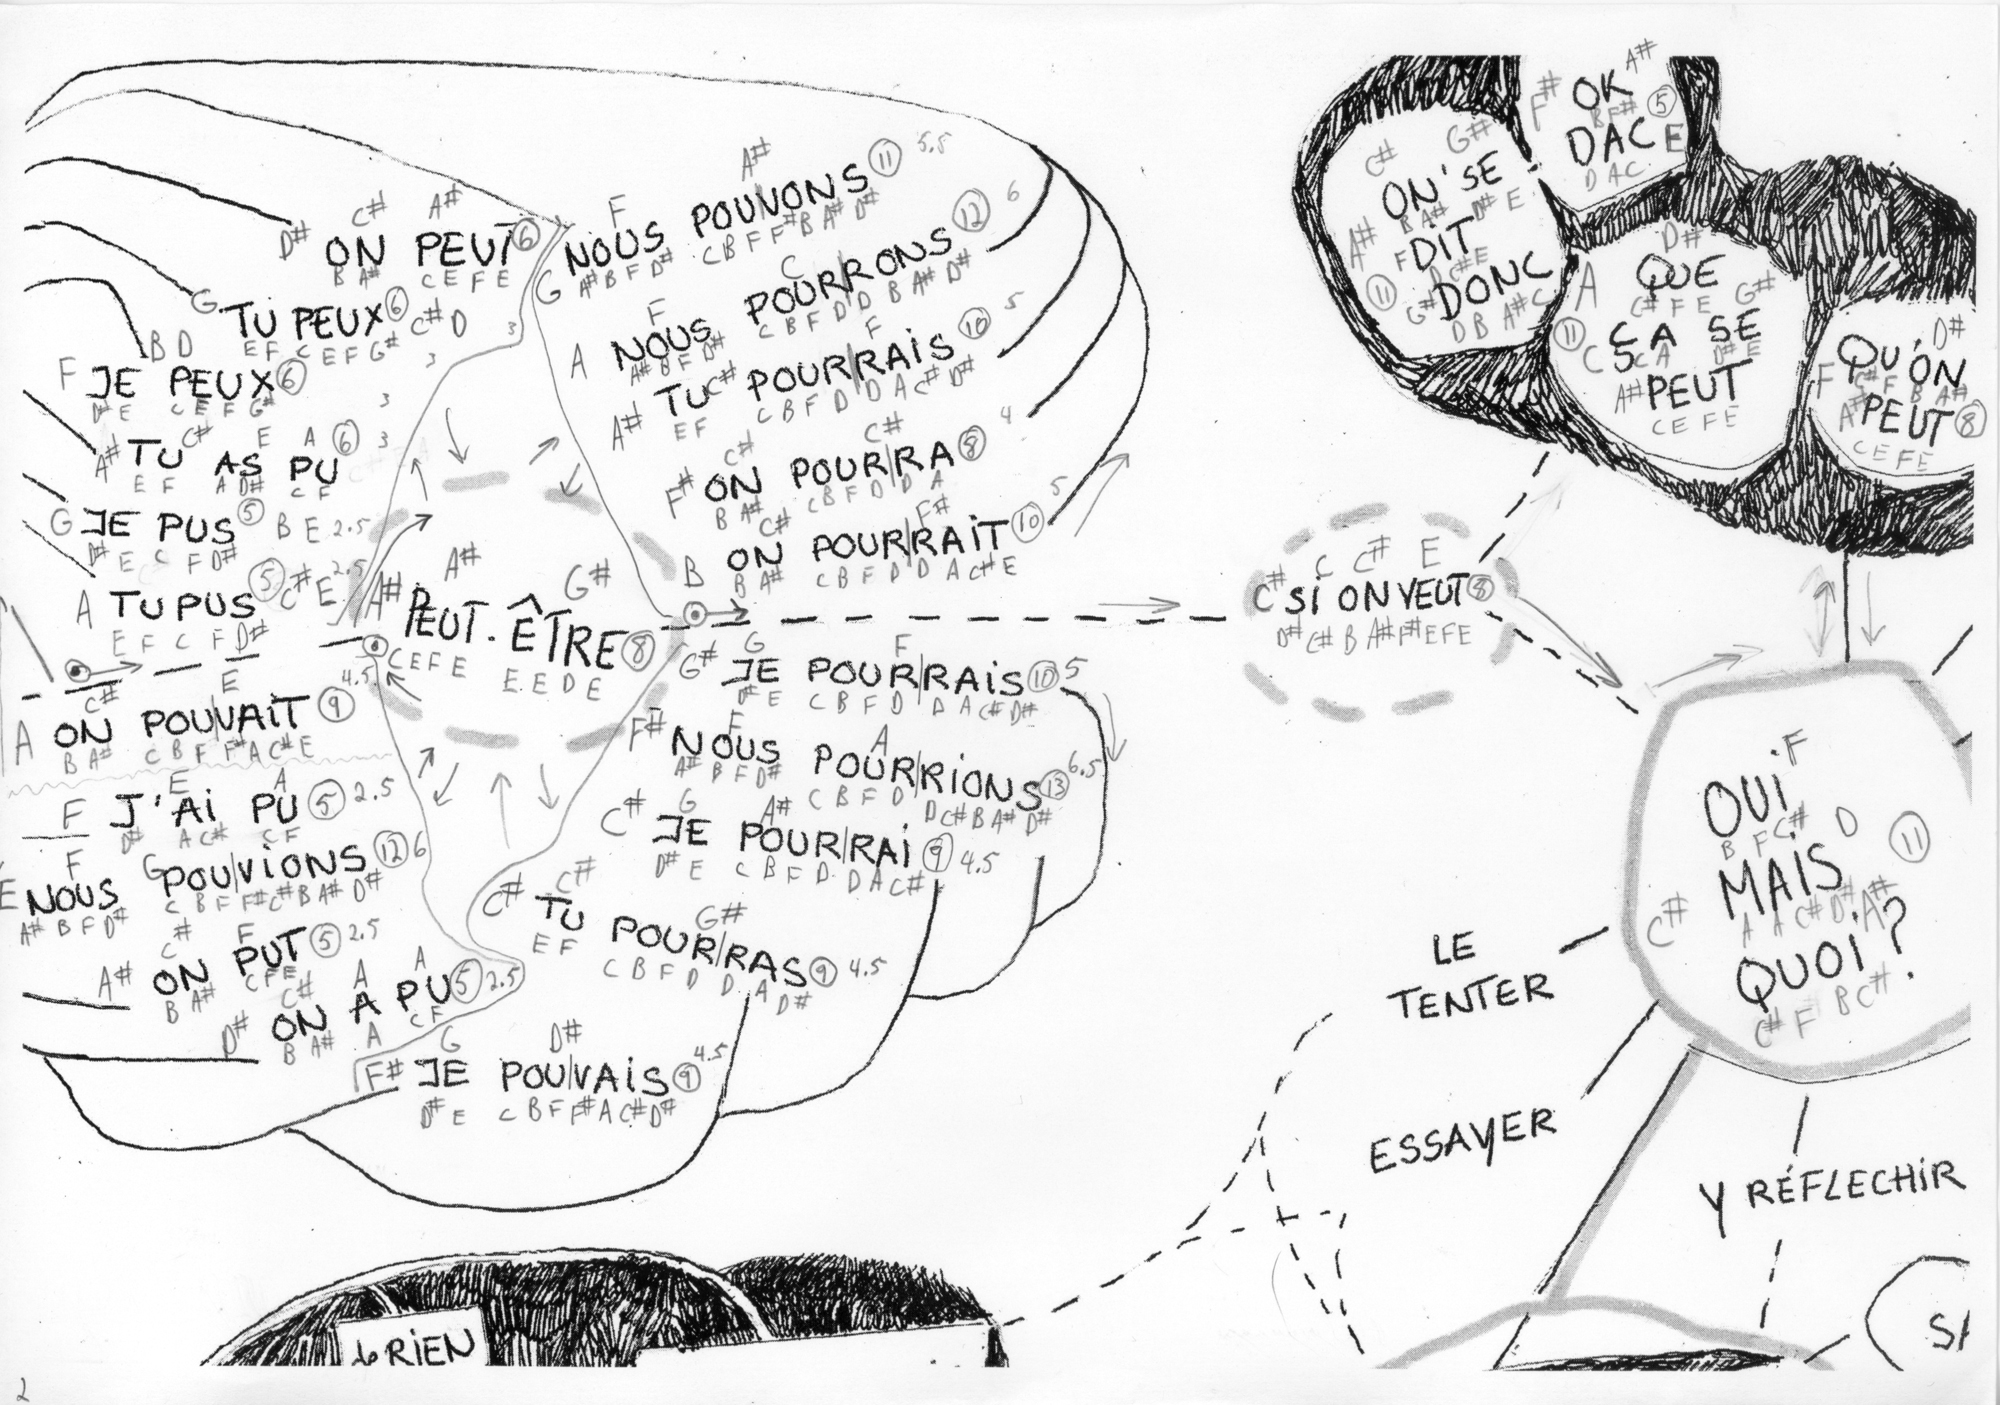 C# A#
D# ON PEUT 6
B A# C E F E
G TU PEUX 6 C# D 3
E F C E F G#
B D 3
F JE PEUX 6
D# E C E F G# 3
C# E A
A# TU AS PU 6 3
E F A D# C F
G JE PUS 5 B E 2.5
D# E C F D#
A TU PUS 5 C# E 2.5
E F C F D#
F A#
NOUS POU|VONS 11 5.5
G A# B F D# C B F F# B A# D#
F C
A NOUS POUR|RONS 12 6
A# B F D# C B F D D B A# D#
C# F
A# TU POUR|RAIS 10 5
E F C B F D D A C# D#
C# C#
F# ON POUR|RA 8 4
B A# C B F D D A
C# F#
B ON POUR|RAIT 10 5
B A# C B F D D A C# E
A# G#
A# PEUT-ÊTRE 8
C E F E E E D E
C# E
A ON POU|VAIT 9 4.5
B A# C B F F# A C# E
E A
F J'AI PU 5 2.5
D# A C# C F
F G
E NOUS POU|VIONS 12 6
A# B F D# C B F F# C# B A# D#
C# F
A# ON PUT 5 2.5
B A# C F E
C# A A
D# ON A PU 5 2.5
B A# A C F
G D#
F# JE POU|VAIS 9 4.5
D# E C B F F# A C# D#
G F
G# JE POUR|RAIS 10 5
D# E C B F D D A C# D#
F A
F# NOUS POUR|RIONS 13 6.5
A# B F D# C B F D D C# B A# D#
G A#
C# JE POUR|RAI 9 4.5
D# E C B F D D A C#
C# G#
C# TU POUR|RAS 9 4.5
E F C B F D D A D#
C C# E
C# SI ON VEUT 8
D# C# B A# F# E F E
A#
F# OK 5
B F#
DAC E
D A C
C# G#
ON'SE
B A# D# E
A# DIT
F D C# E
11 G# DONC
D B A# C
D#
A QUE
C# F E G#
11 ÇA SE
C C A D# E
A# PEUT
C E F E
D#
F QU'ON
C# F B A#
A# PEUT 8
C E F E
OUI F
B F C# D
MAIS 11
A A C# D# A#
C# QUOI ?
C# F B C#
LE
TENTER
ESSAYER
Y RÉFLECHIR
RIEN
2